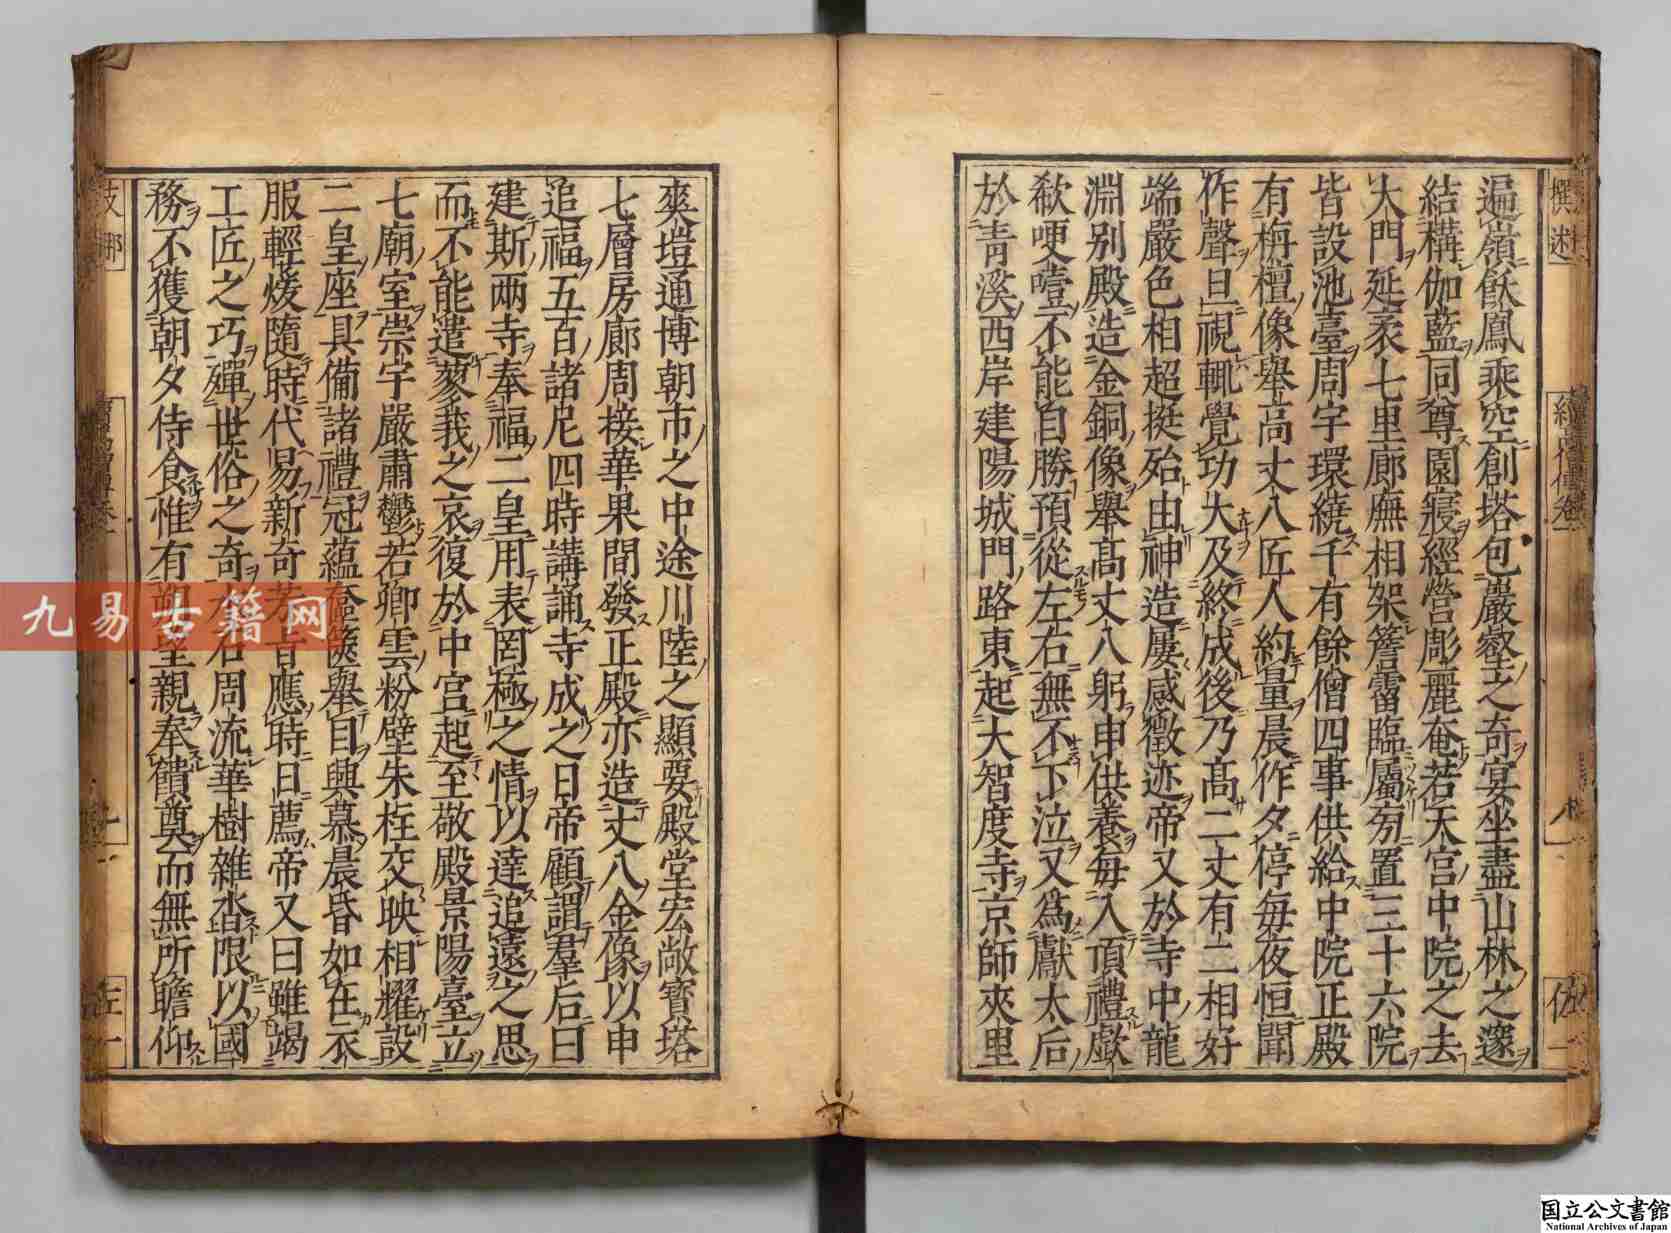 遍嶺飫鳳乘空創塔包巖壑之奇宴坐盡山林之邃
結構伽藍同尊園寢經營彫麗奄若天宮中院之去
大門延袤七里廊廡相架簷霤臨屬旁置三十六院
皆設池臺周宇環繞千有餘僧四事供給中院正殿
有栴檀像舉高丈八匠人約量晨作夕停每夜恒聞
作聲旦視輒覺功大及終成後乃高二丈有二相好
端嚴色相超挺殆由神造屢感徵迹帝又於寺中龍
淵別殿造金銅像舉高丈八躬申供養每入頂禮歔
欷哽噎不能自勝預從左右無不下泣又爲獻太后
於青溪西岸建陽城門路東起大智度寺京師夾里
爽塏通博朝市之中途川陸之顯要殿堂宏敞寶塔
七層房廊周接華果間發正殿亦造丈八金像以申
追福五百諸尼四時講誦寺成之日帝顧謂羣后曰
建斯兩寺奉福二皇用表罔極之情以達追遠之思
而不能遣蓼莪之哀復於中宮起至敬殿景陽臺立
七廟室崇宇嚴肅鬱若卿雲粉壁朱柱交映相耀設
二皇座具備諸禮冠蘊奩篋舉目興慕晨昏如在衣
服輕煖隨時代易新奇芳旨應時日薦帝又曰雖竭
工匠之巧殫世俗之奇水石周流華樹雜沓限以國
務不獲朝夕侍食惟有朔望親奉饋奠而無所瞻仰
撰述
續高僧傳卷一
伍一
支那
九易古籍网
国立公文書館
National Archives of Japan